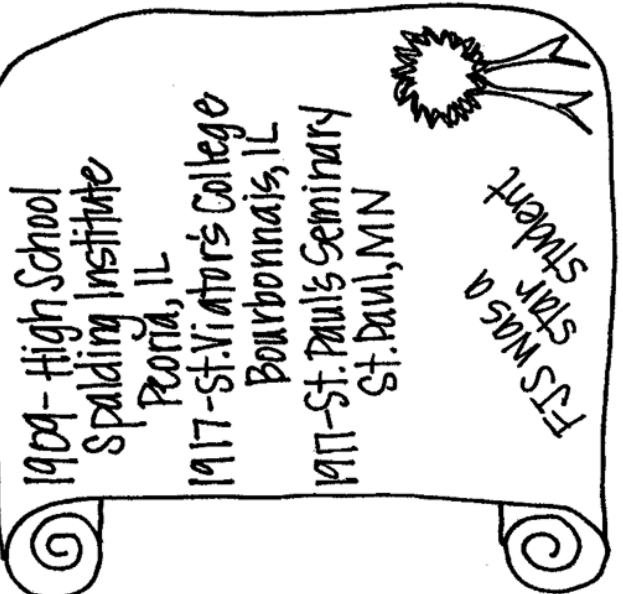 1909- High School
Spalding Institute
Peoria, IL
1917-St. Viator's College
Bourbonnais, IL
1917-St. Paul's Seminary
St. Paul, MN
FJS was a
star
student